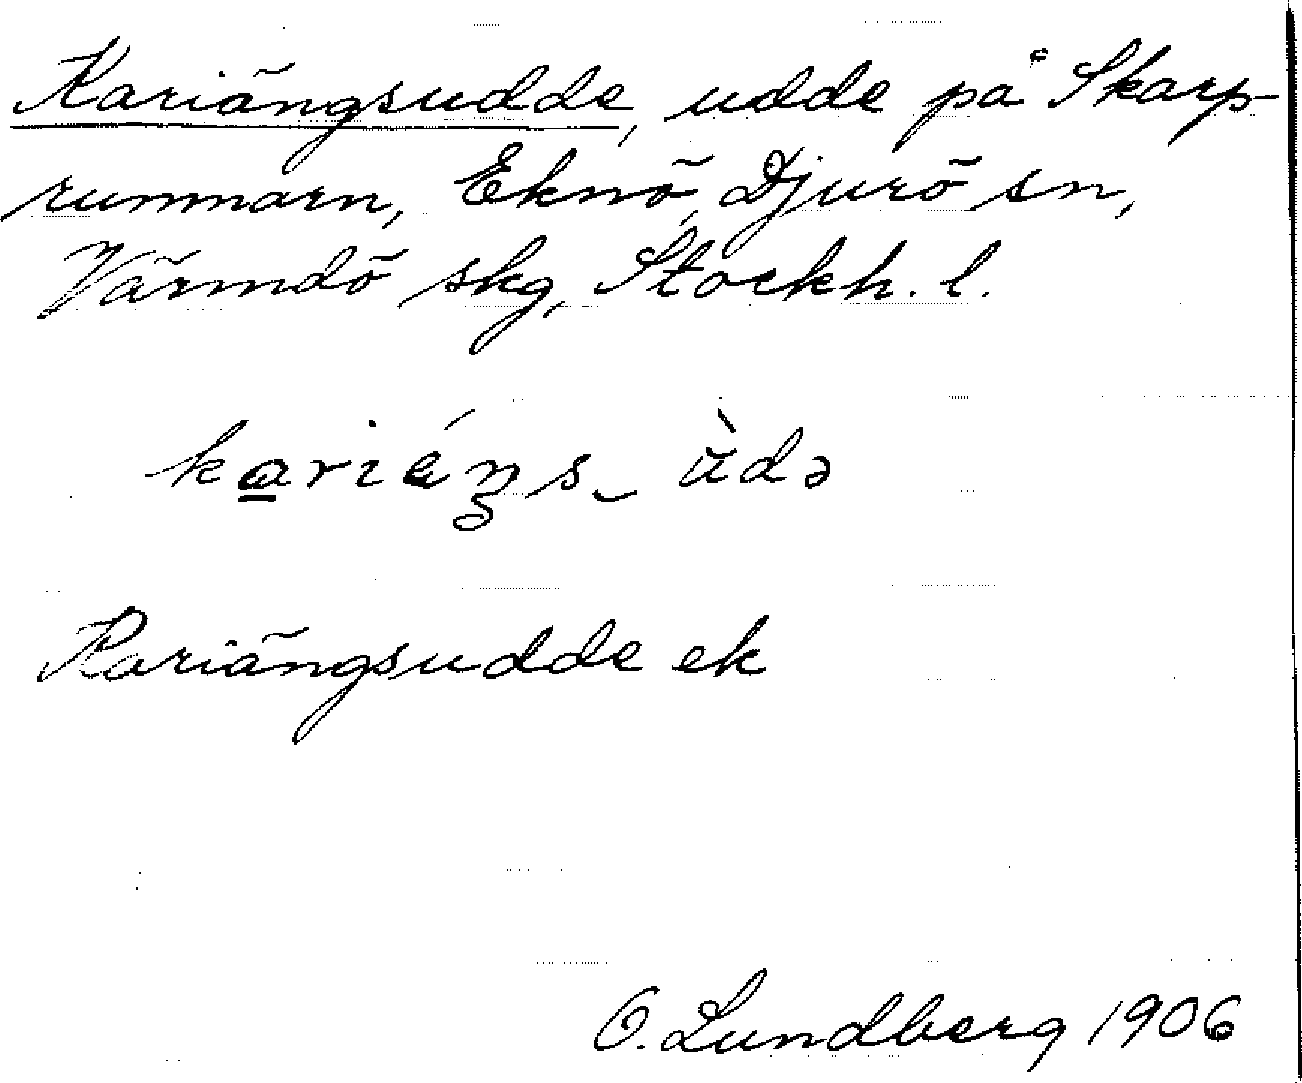 Kariängsudde, udde på Skarp-
runmarn, Eknö, Djurö sn,
Värmdö skg, Stockh. l.
kariáŋs‿ ùdə
Kariängsudde ek
O. Lundberg 1906